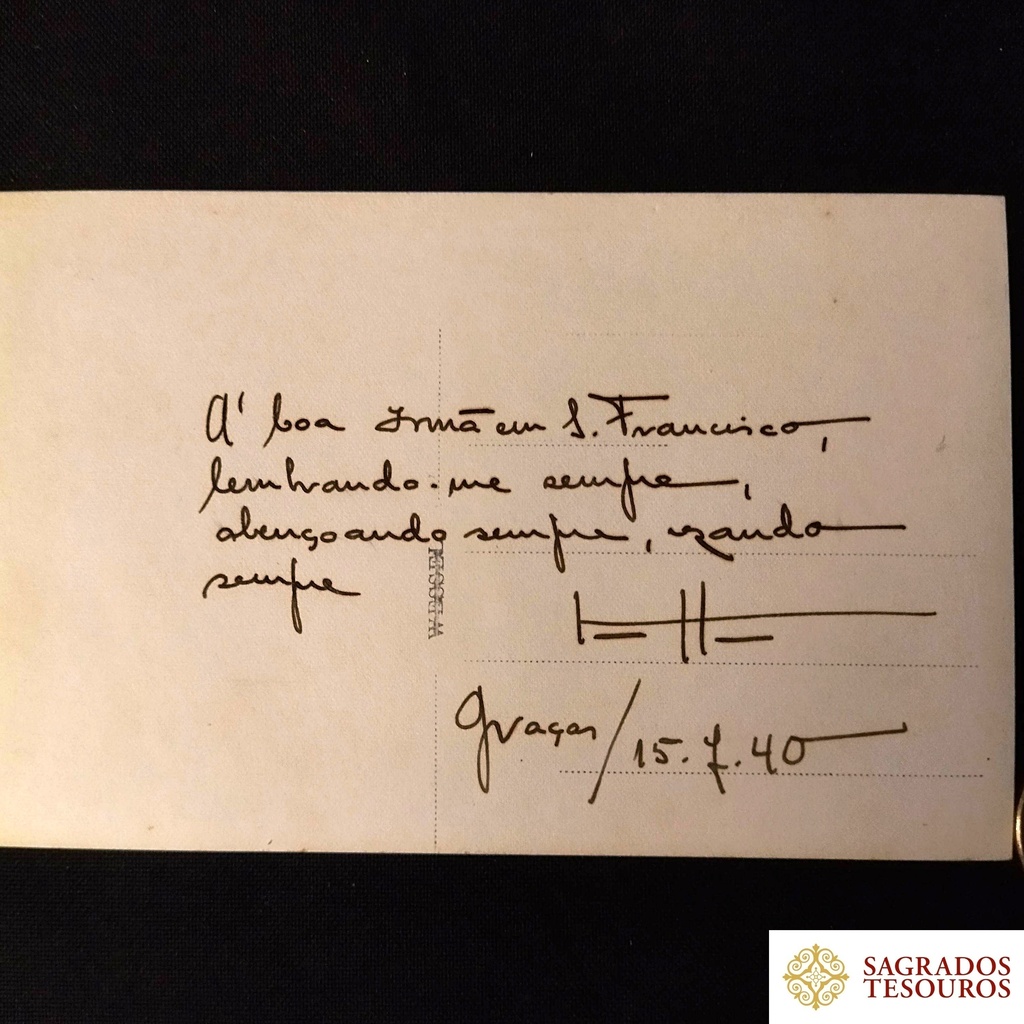 A' boa Irmã em S. Francisco,
lembrando-me sempre,
abençoando sempre, rezando
sempre
Graças / 15.7.40
SAGRADOS
TESOUROS